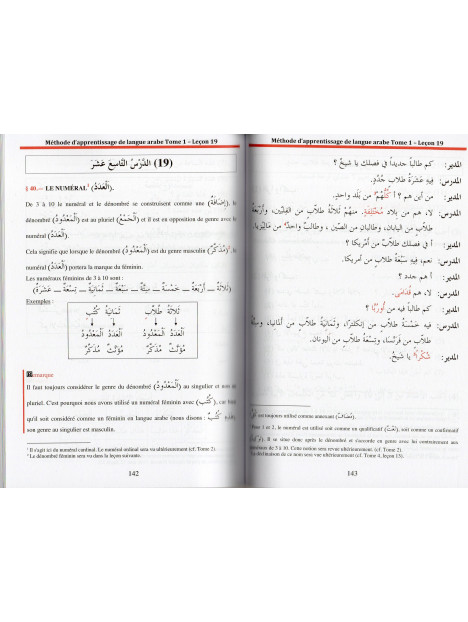 Méthode d'apprentissage de langue arabe Tome 1 – Leçon 19
(19) الدَّرْسُ التَّاسِعَ عَشَرَ
§ 40.— LE NUMÉRAL¹ (اَلْعَدَدُ).
De 3 à 10 le numéral et le dénombré se construisent comme une (إِضَافَةٌ), le
dénombré (اَلْمَعْدُودُ) est au pluriel (اَلْجَمْعُ) et il est en opposition de genre avec le
numéral (اَلْعَدَدُ).
Cela signifie que lorsque le dénombré (اَلْمَعْدُودُ) est du genre masculin (مُذَكَّرٌ)², le
numéral (اَلْعَدَدُ) portera la marque du féminin.
Les numéraux féminins de 3 à 10 sont :
(ثَلَاثَةٌ ــ أَرْبَعَةٌ ــ خَمْسَةٌ ــ سِتَّةٌ ــ سَبْعَةٌ ــ ثَمَانِيَةٌ ــ تِسْعَةٌ ــ عَشَرَةٌ)
Exemples :
ثَلَاثَةُ طُلَّابٍ ثَمَانِيَةُ كُتُبٍ
اَلْعَدَدُ اَلْمَعْدُودُ اَلْعَدَدُ اَلْمَعْدُودُ
مُؤَنَّثٌ مُذَكَّرٌ مُؤَنَّثٌ مُذَكَّرٌ
Remarque
Il faut toujours considérer le genre du dénombré (اَلْمَعْدُودُ) au singulier et non au
pluriel. C'est pourquoi nous avons utilisé un numéral féminin avec (كُتُبٌ), car bien
qu'il soit considéré comme un féminin en langue arabe (nous disons : كُتُبٌ
son genre au singulier est masculin.
¹ Il s'agit ici du numéral cardinal. Le numéral ordinal sera vu ultérieurement (cf. Tome 2).
² Le dénombré féminin sera vu dans la leçon suivante.
142
Méthode d'apprentissage de langue arabe Tome 1 – Leçon 19
المدير: كم طالباً جديداً في فصلك يا شيخُ ؟
المدرس: فِيهِ عَشَرَةُ طلابٍ جُدُدٍ.
المدير: من أين هم ؟ أَكُلُّهُمْ من بلد واحدٍ.
المدرس: لا، هم من بلاد مُخْتَلِفَةٍ. مِنهُمْ ثَلَاثَةُ طلابٍ من الفِلِبِّين، وأربعَةُ
طلاب من اليابان، وطالبان من الصّين ، وطالبٌ واحدٌ من مَالِيزِيَا.
المدير: أ في فصلك طلابٌ من أمريكا ؟
المدرس: نعم، فيه سَبْعَةُ طلابٍ من أمريكا.
المدير: أ هم جدد ؟
المدرس: لا، هم قُدَامَى.
المدير: كم طالباً فيه من أُورُبَّا ؟
المدرس: فيه خَمْسَةُ طلابٍ من إنكلترّا، وثمانيَةُ طلاب من ألمانيا، وسِتَّةُ
طلاب من فَرَنْسَا، وتِسْعَةُ طلابٍ من اليونان.
المدير: شُكْراً يا شيخُ.
est toujours utilisé comme annexant (مُضَافٌ).
Pour 1 et 2, le numéral est soit considéré comme un qualificatif (نَعْتٌ), soit comme un confirmatif
Il se situe donc après le dénombré et s'accorde en genre avec lui contrairement aux
numéraux de 3 à 10. Cette notion sera revue ultérieurement (cf. Tome 2).
La déclinaison de ce nom sera vue ultérieurement (cf. Tome 4, leçon 13).
143